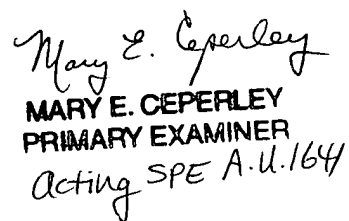 Mary E. Ceperley
MARY E. CEPERLEY
PRIMARY EXAMINER
acting SPE A.U. 1641